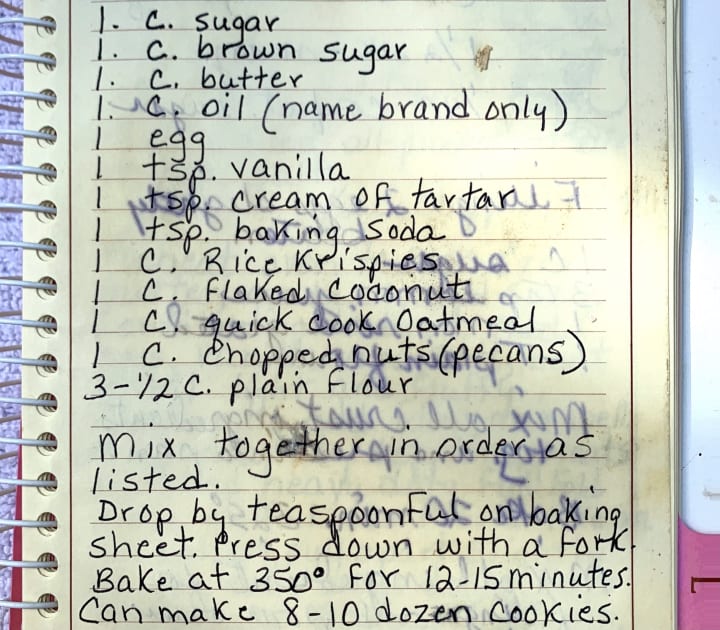 1. C. sugar
1. C. brown sugar
1. C. butter
1. C. oil (name brand only)
1 egg
1 tsp. vanilla
1 tsp. cream of tartar
1 tsp. baking soda
1 C. Rice Krispies
1 C. flaked coconut
1 C. quick cook oatmeal
1 C. chopped nuts (pecans)
3-1/2 C. plain flour
Mix together in order as
listed.
Drop by teaspoonful on baking
sheet. Press down with a fork.
Bake at 350° for 12-15 minutes.
Can make 8-10 dozen cookies.